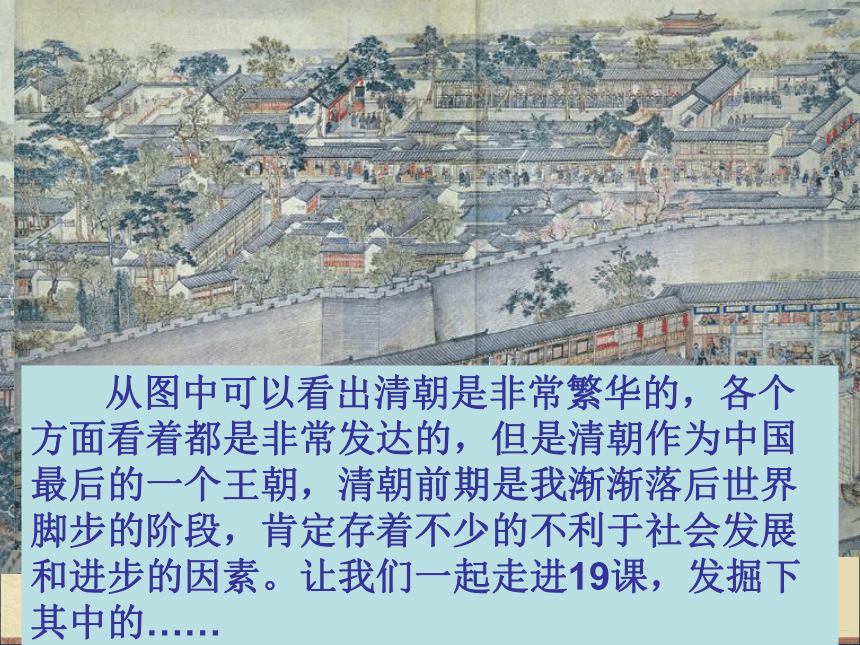 从图中可以看出清朝是非常繁华的，各个
方面看着都是非常发达的，但是清朝作为中国
最后的一个王朝，清朝前期是我渐渐落后世界
脚步的阶段，肯定存着不少的不利于社会发展
和进步的因素。让我们一起走进19课，发掘下
其中的……